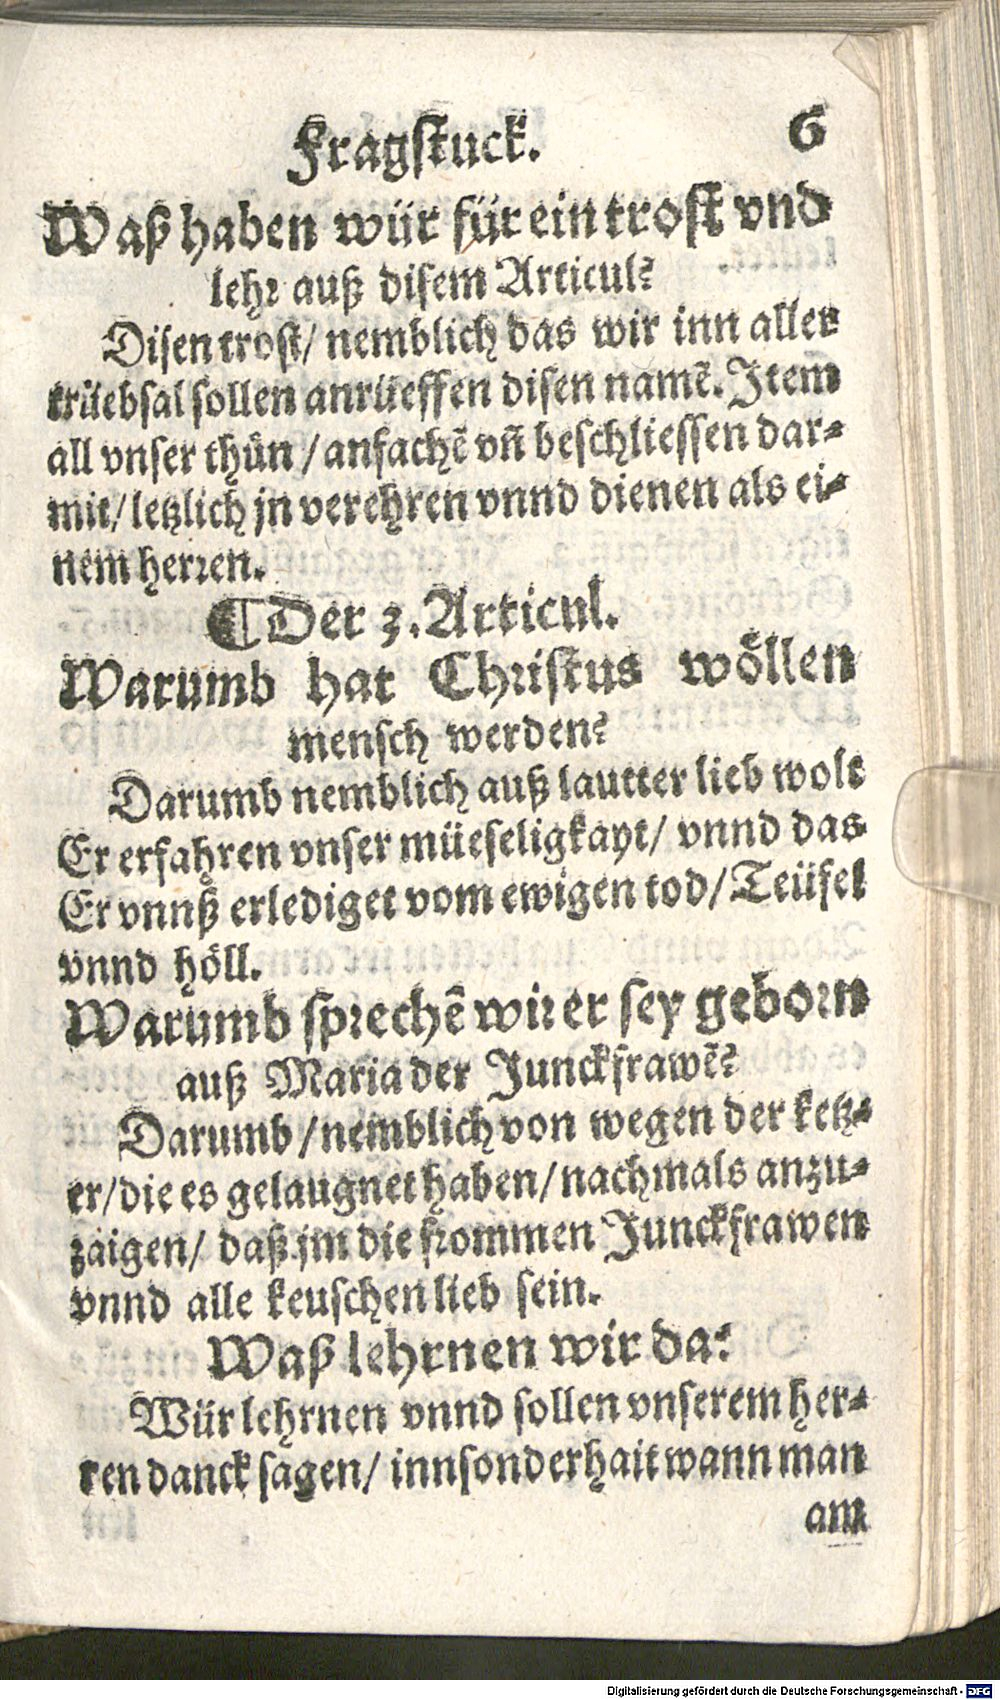 Fragstuck. 6
Waß haben wür für ein trost vnd
lehr auß disem Articul?
Disen trost/ nemblich das wir inn aller
trüebsal sollen anrüeffen disen namẽ. Item
all vnser thůn / anfachẽ vñ beschliessen dar-
mit/ letzlich jn verehren vnnd dienen als ei-
nem herren.
¶ Der 3. Articul.
Warumb hat Christus wöllen
mensch werden?
Darumb nemblich auß lautter lieb wolt
Er erfahren vnser müeseligkayt/ vnnd das
Er vnnß erlediget vom ewigen tod/ Teüfel
vnnd höll.
Warumb sprechẽ wir er sey geborn
auß Maria der Junckfrawẽ?
Darumb / nemblich von wegen der ketz-
er/ die es gelaugnet haben/ nachmals anzu-
zaigen/ daß jm die frommen Junckfrawen
vnnd alle keuschen lieb sein.
Waß lehrnen wir da?
Wür lehrnen vnnd sollen vnserem her-
ren danck sagen/ innsonderhait wann man
am
Digitalisierung gefördert durch die Deutsche Forschungsgemeinschaft - DFG